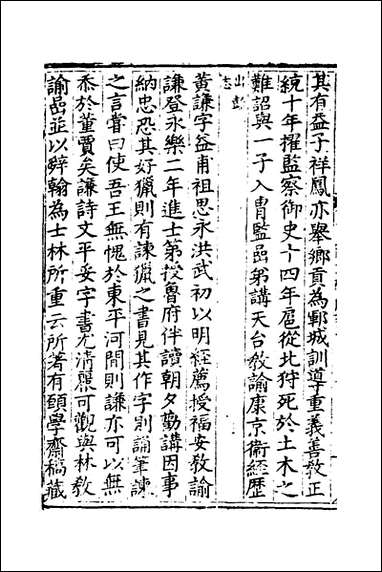 其有益子祥鳳亦舉鄉貢為鄆城訓導重義善教正
統十年擢監察御史十四年扈從北狩死於土木之
難詔與一子入胄監嵒弟講天台教諭康京衛經歷
出彭
志
黃謙字益甫祖思永洪武初以明經薦授福安教諭
謙登永樂二年進士第授魯府伴讀朝夕勤講因事
納忠恐其好獵則有諫獵之書見其作字則誦筆諫
之言嘗曰使吾王無愧於東平河間則謙亦可以無
忝於董賈矣謙詩文平妥字書尤清勁可觀與林教
諭嵒並以辭翰為士林所重云所著有頤學齋稿藏